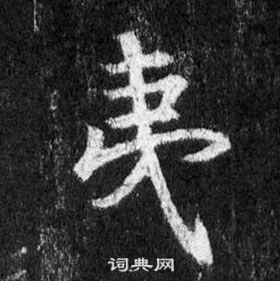 夷
词典网